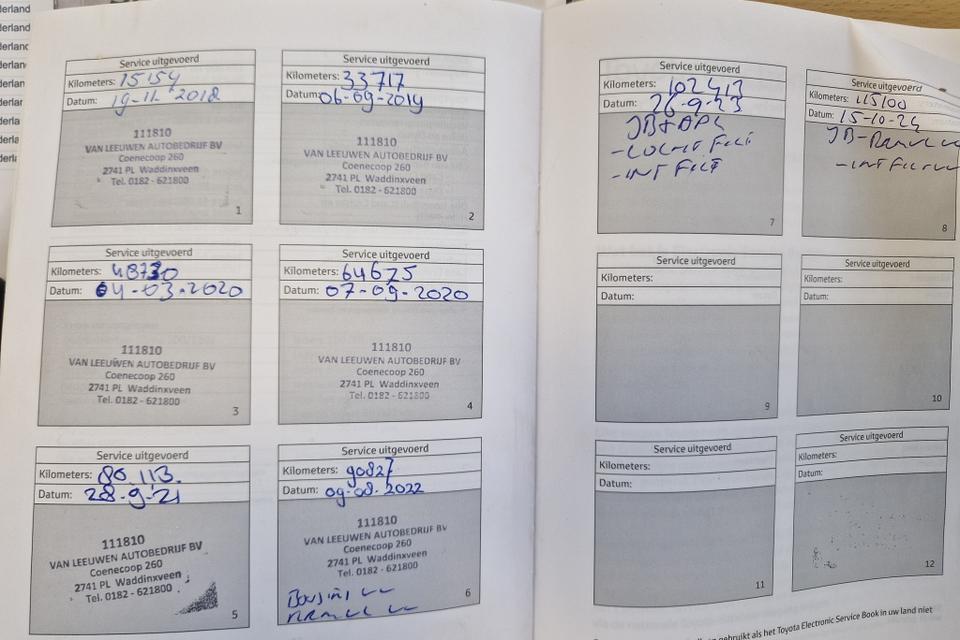 Service uitgevoerd
Kilometers: 15154
Datum: 19-11. 2018
111810
VAN LEEUWEN AUTOBEDRIJF BV
Coenecoop 260
2741 PL Waddinxveen
Tel. 0182 - 621800
1
Service uitgevoerd
Kilometers: 33717
Datum: 06-09-2019
111810
VAN LEEUWEN AUTOBEDRIJF BV
Coenecoop 260
2741 PL Waddinxveen
Tel. 0182 - 621800
2
Service uitgevoerd
Kilometers: 48730
Datum: 04-03-2020
111810
VAN LEEUWEN AUTOBEDRIJF BV
Coenecoop 260
2741 PL Waddinxveen
Tel. 0182 - 621800
3
Service uitgevoerd
Kilometers: 64675
Datum: 07-09-2020
111810
VAN LEEUWEN AUTOBEDRIJF BV
Coenecoop 260
2741 PL Waddinxveen
Tel. 0182 - 621800
4
Service uitgevoerd
Kilometers: 80.113.
Datum: 28-9-21
111810
VAN LEEUWEN AUTOBEDRIJF BV
Coenecoop 260
2741 PL Waddinxveen
Tel. 0182 - 621800
5
Service uitgevoerd
Kilometers: 90827
Datum: 09-08-2022
111810
VAN LEEUWEN AUTOBEDRIJF BV
Coenecoop 260
2741 PL Waddinxveen
Tel. 0182 - 621800
6
Service uitgevoerd
Kilometers: 102413
Datum: 26-9-23
- INT FILT
7
Service uitgevoerd
Kilometers: 115100
Datum: 15-10-24
8
Service uitgevoerd
Kilometers:
Datum:
9
Service uitgevoerd
Kilometers:
Datum:
10
Service uitgevoerd
Kilometers:
Datum:
11
Service uitgevoerd
Kilometers:
Datum:
12
gebruikt als het Toyota Electronic Service Book in uw land niet